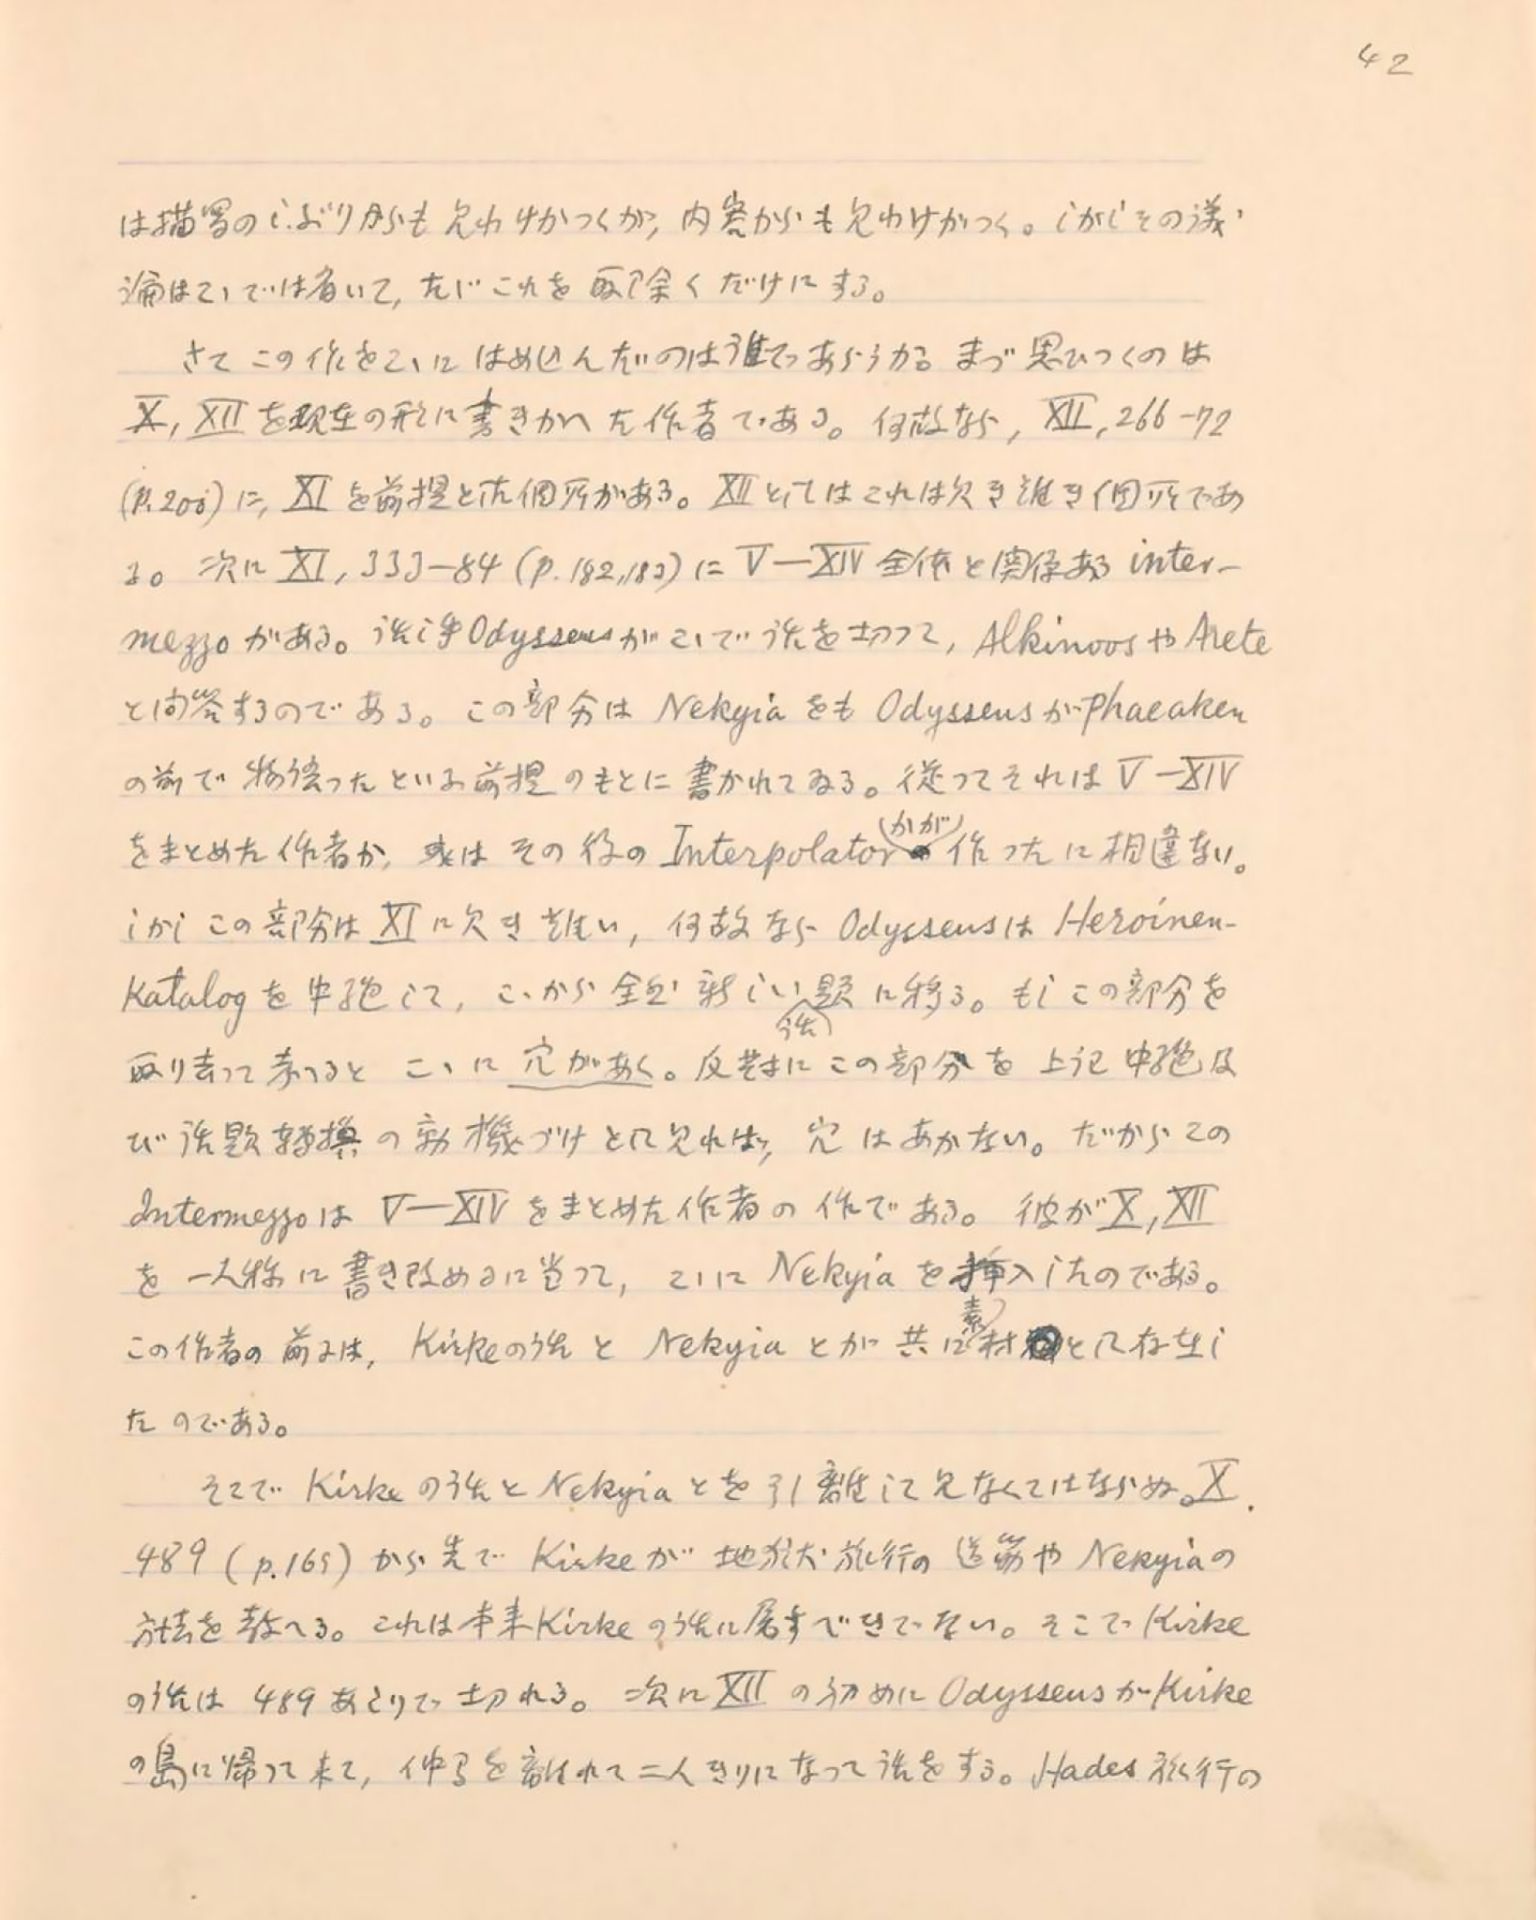 42
は描写のしぶりからも見わけがつくが、内容からも見わけがつく。しかしその議
論はこゝでは省いて、たゞこれを取除くだけにする。
さてこの作をこゝにはめ込んだのは誰であらうか。まづ思ひつくのは
X, XII を現在の形に書きかへた作者である。何故なら, XII, 266-72
(p.200) に, XI を前提とした個所がある。XII としてはこれは欠き難き個所であ
る。次に XI, 333-84 (p. 182, 183) に V—XIV 全体と関係ある inter-
mezzo がある。話し手 Odysseus がこゝで話を切つて, Alkinoos や Arete
と問答するのである。この部分は Nekyia をも Odysseus が Phaeaken
の前で物語つたといふ前提のもとに書かれてゐる。従つてそれは V—XIV
をまとめた作者か, 或はその後の Interpolator かが作つたに相違ない。
しかしこの部分は XI に欠き難い, 何故なら Odysseus は Heroinen-
Katalog を中絶して, こゝから全然新しい話題に移る。もしこの部分を
取り去つて考へるとこゝに穴があく。反対にこの部分を上記中絶及
び話題転換の動機づけとして見れば, 穴はあかない。だからこの
Intermezzo は V—XIV をまとめた作者の作である。彼が X, XII
を一人称に書き改めるに当つて, こゝに Nekyia を挿入したのである。
この作者の前には, Kirke の話と Nekyia とが共に素材として存在し
たのである。
そこで Kirke の話と Nekyia とを引離して見なくてはならぬ。X.
489 (p.165) から先で Kirke が地獄旅行の道筋や Nekyia の
方法を教へる。これは本来 Kirke の話に属すべきでない。そこで Kirke
の話は 489 あたりで切れる。次に XII の初めに Odysseus が Kirke
の島に帰つて来て, 仲間を離れて二人きりになつて話をする。Hades 旅行の